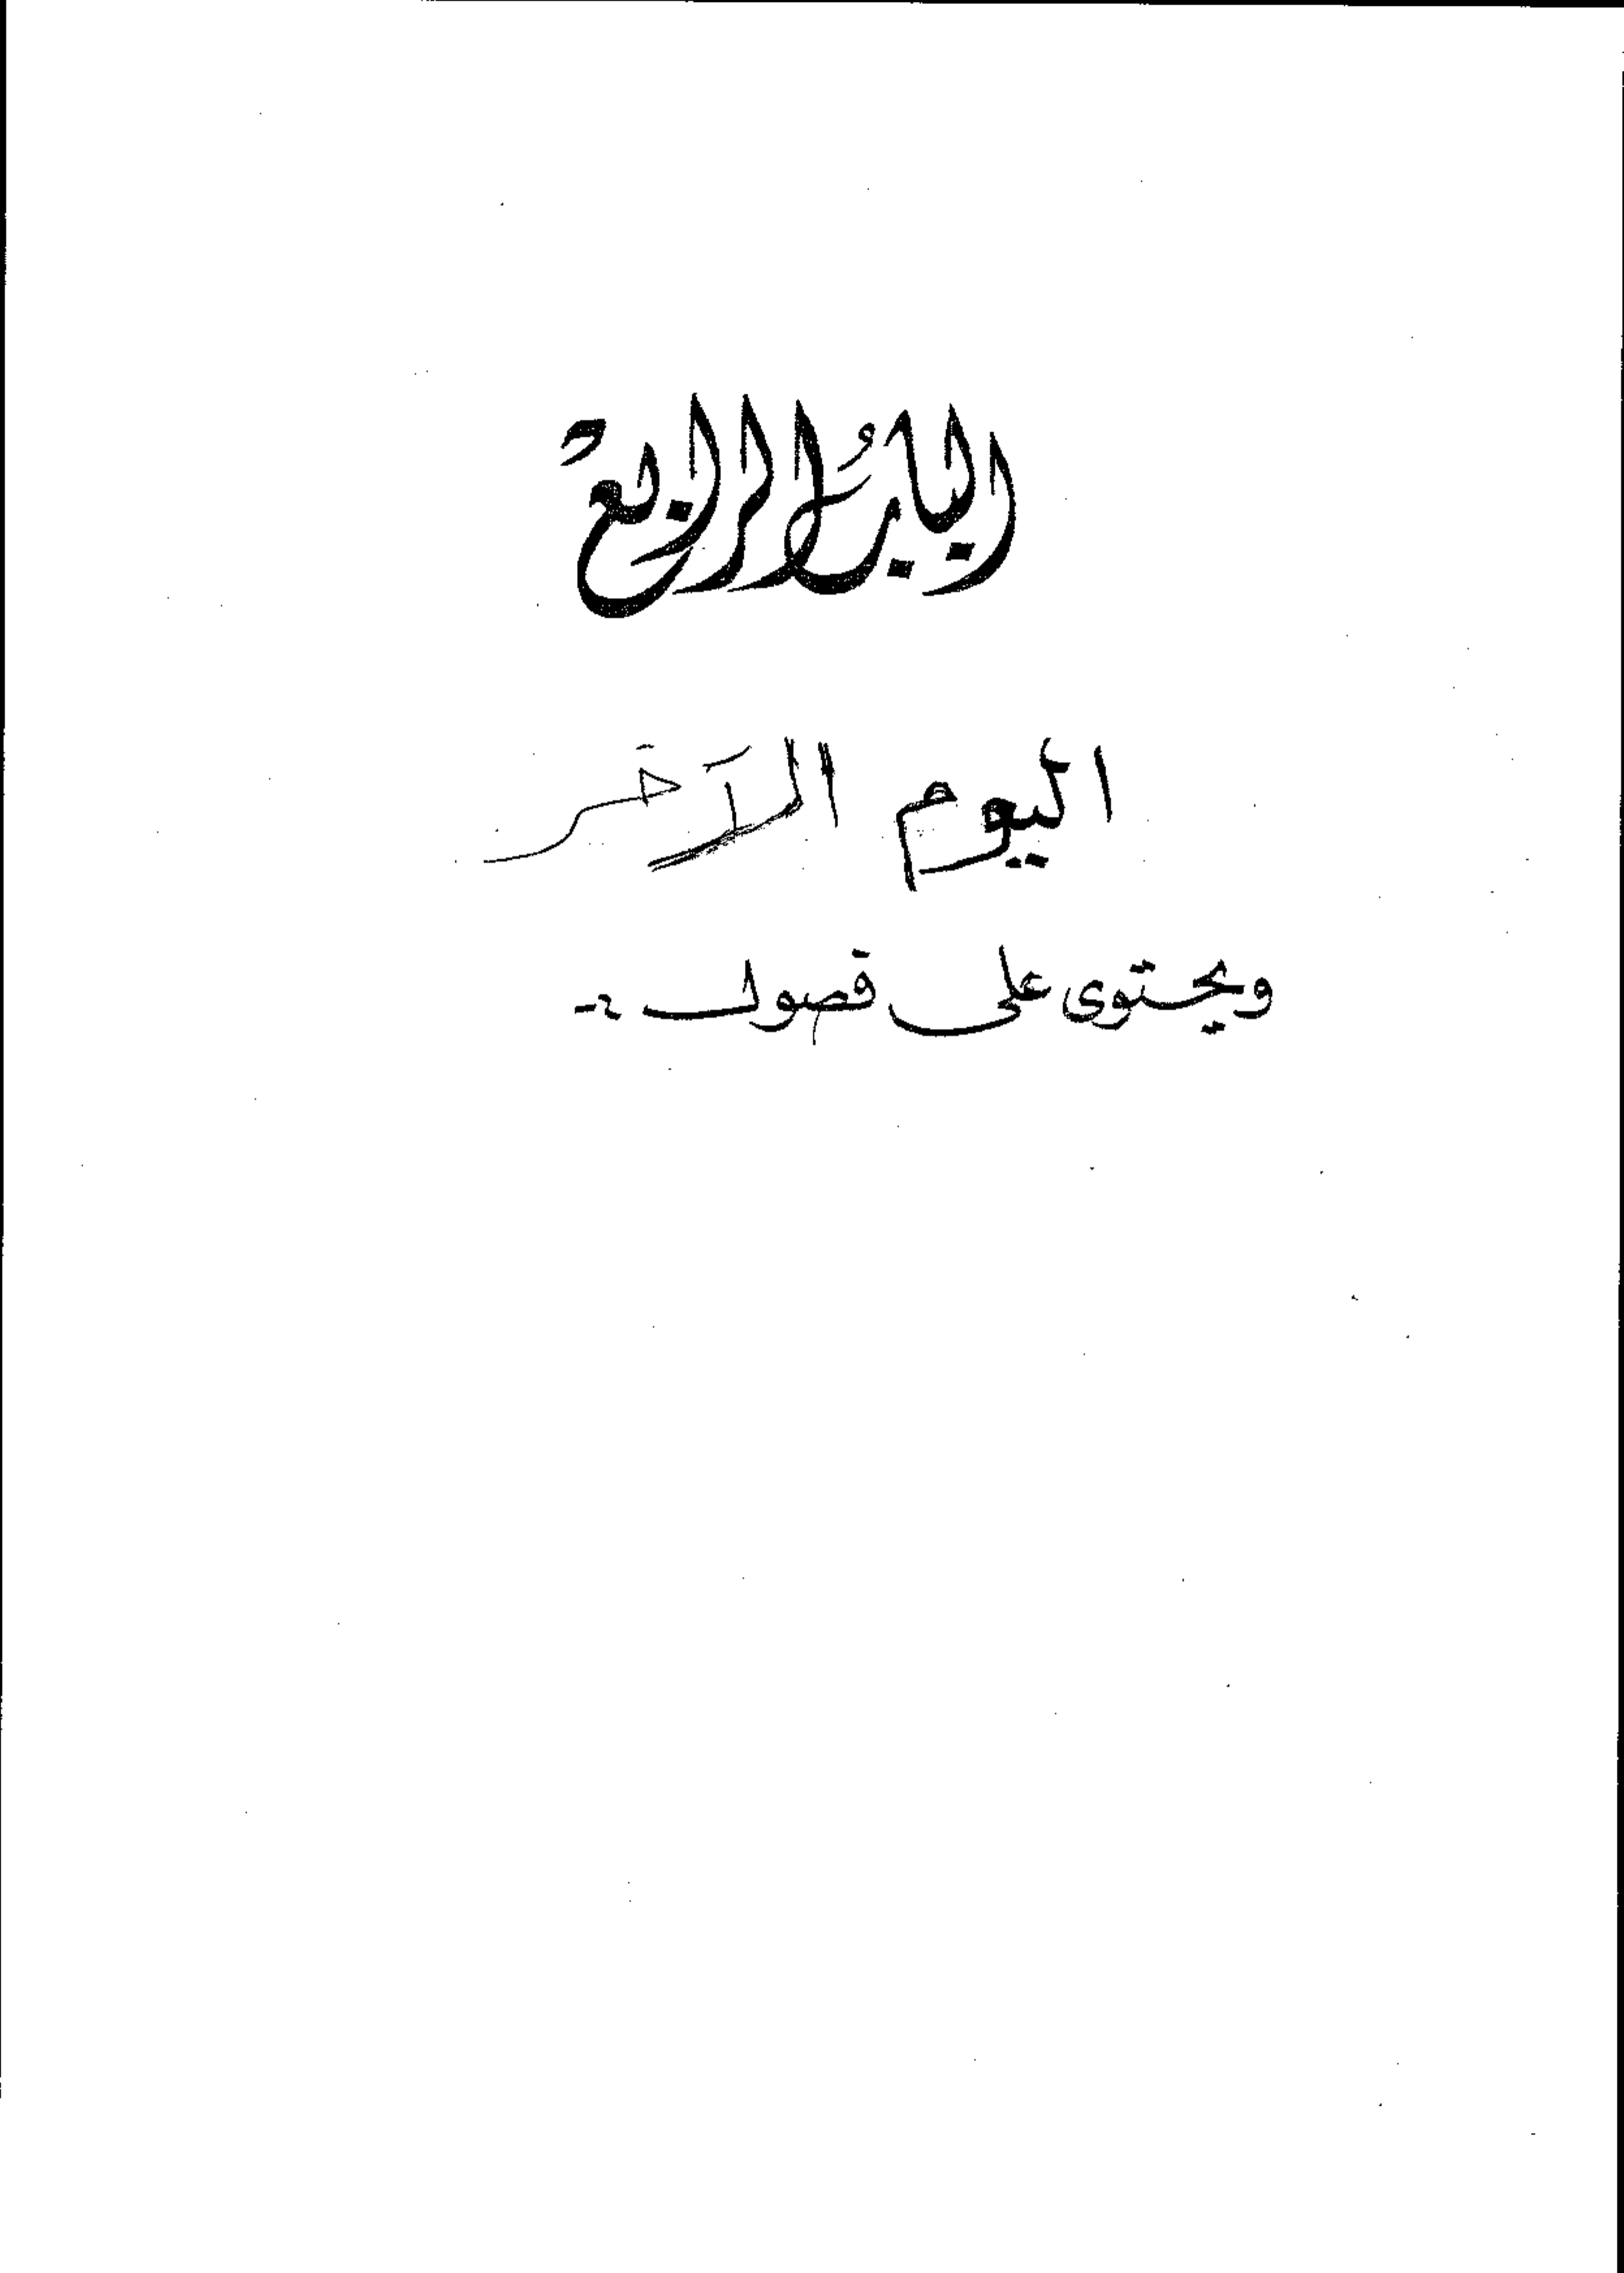 البابُ الرابع
اليوم الآخر
ويحتوى على فصول :-